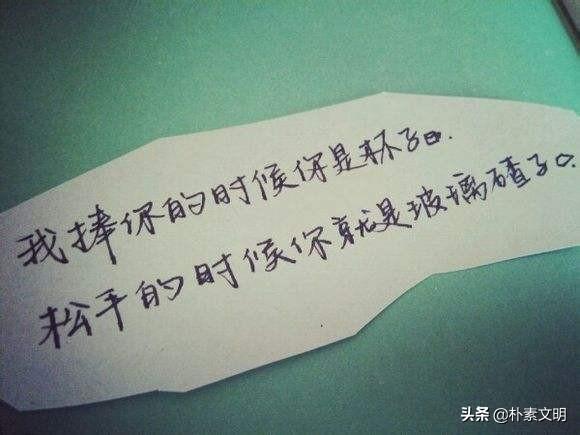 我捧你的时候你是杯子.
松手的时候你就是玻璃碴子。
头条 @朴素文明